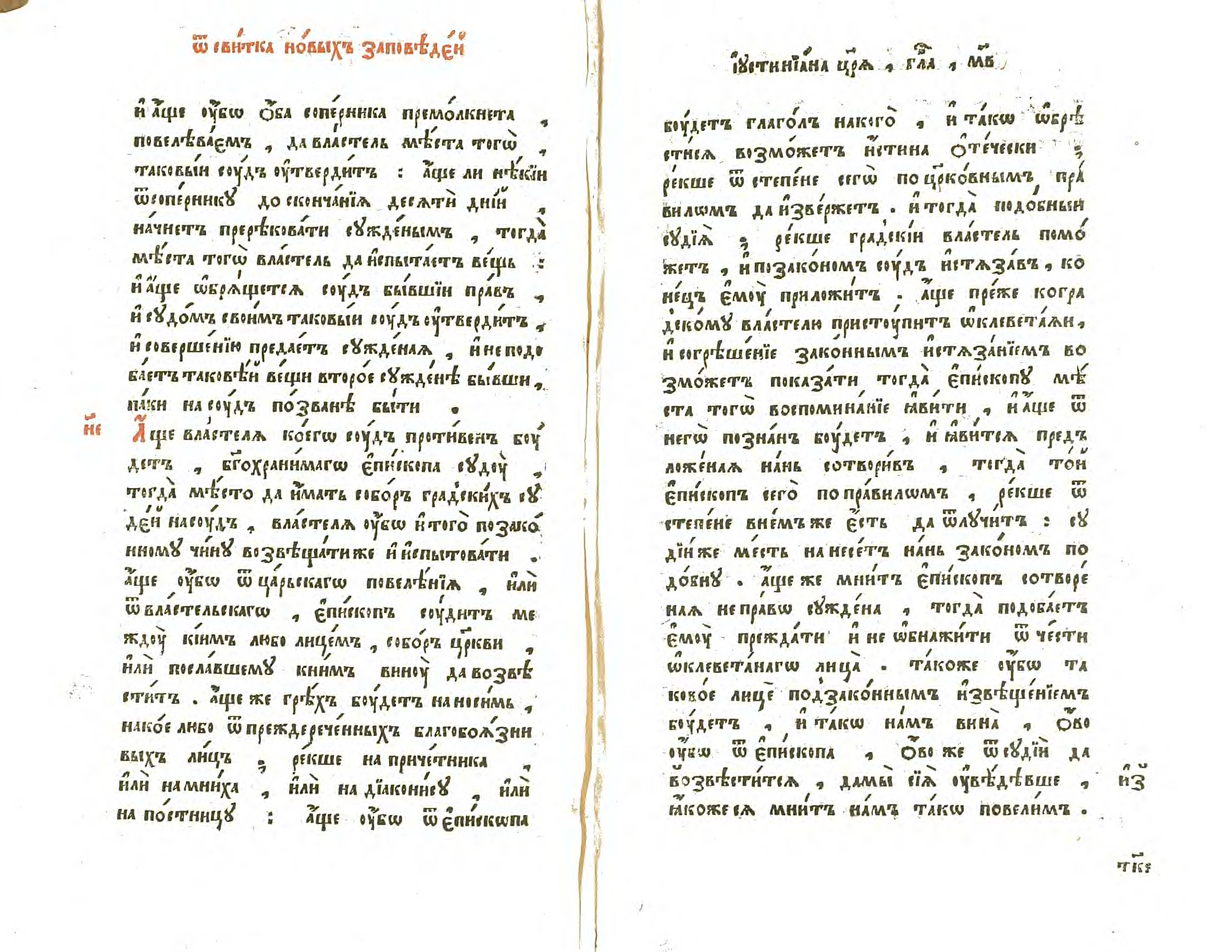 ѿ сви́тка но́выхъ заповѣде́й
и҆ а҆́ще ᲂу҆́бѡ ѻ҆́ба сопе́рника премо́лкнета ,
повелѣва́емъ , да вла́стель мѣ́ста тогѡ̀ ,
таковы́и сꙋ́дъ ᲂу҆тверди́тъ : а҆́ще ли нѣ́кїи
ѿ сопе́рникꙋ до сконча́нїѧ десѧтѝ дні́й ,
на́чнетъ прерѣкова́ти сꙋжде́нымъ , тогда̀
мѣ́ста тогѡ̀ вла́стель да и҆спыта́етъ ве́щь :
и҆ а҆́ще ѡ҆брѧ́щетсѧ сꙋ́дъ бы́вшїи пра́въ ,
и҆ сꙋдо́мъ свои́мъ таковы́и сꙋ́дъ ᲂу҆тверди́тъ ,
и҆ соверше́нїю предае́тъ сꙋжде́наѧ , и҆ не подо
ба́етъ таковѣ́й ве́щи второ́е сꙋжде́нѣ бы́вши ,
па́ки на сꙋ́дъ по́званѣ бы́ти .
н҃е А҆́ще вла́стелѧ ко́егѡ сꙋ́дъ проти́венъ бꙋ́
детъ , бг҃охрани́магѡ є҆пи́скопа сꙋдꙋ̀ ,
тогда̀ мѣ́сто да и҆́мать собо́ръ гра́дскихъ сꙋ
де́й на сꙋ́дъ , вла́стелѧ ᲂу҆́бѡ и҆ того̀ по зако́
нномꙋ чи́нꙋ возвѣща́ти же и҆ и҆спытова́ти .
а҆́ще ᲂу҆́бѡ ѿ ца́рьскагѡ повелѣ́нїѧ , и҆лѝ
ѿ вла́стельскагѡ , є҆пи́скопъ сꙋ́дитъ ме
ждꙋ̀ кі́имъ любо лице́мъ , собо́ръ цр҃кви ,
и҆лѝ посла́вшемꙋ к ни́мъ винꙋ̀ да возвѣ
сти́тъ . а҆́ще же грѣ́хъ бꙋ́детъ наноси́мь ,
на ко́е либо ѿ преждерече́нныхъ благобоѧзни
выхъ ли́цъ , ре́кше на приче́тника ,
и҆лѝ на мни́ха , и҆лѝ на дїа́конисꙋ , и҆лѝ
на по́стницꙋ : а҆́ще ᲂу҆́бѡ ѿ є҆пи́скопа
і҆ꙋстинїа́на цр҃ѧ , гла̑ , м҃в
бꙋ́детъ глаго́лъ на кого̀ , и҆ та́кѡ ѡ҆брѣ
сти́сѧ возмо́жетъ и҆́стина ѻ҆те́чески ;
ре́кше ѿ степе́не сегѡ̀ по цр҃ко́внымъ пра́
вилѡмъ да и҆зве́ржетъ . и҆ тогда̀ подо́бныи
сꙋдїѧ̀ ; ре́кше гра́дскїи вла́стель помо́
жетъ , и҆ по зако́номъ сꙋ́дъ и҆стѧза́въ , ко
не́цъ є҆мꙋ̀ приложи́тъ . а҆́ще пре́же ко гра
дскомꙋ вла́стелю пристꙋ́питъ ѡ҆клевета́ѧи ,
и҆ согрѣше́нїе зако́ннымъ и҆стѧза́нїемъ во
змо́жетъ показа́ти тогда̀ є҆пи́скопꙋ мѣ́
ста тогѡ̀ воспомина́нїе ꙗ҆ви́ти , и҆ а҆́ще ѿ
негѡ̀ позна́нъ бꙋ́детъ , и҆ ꙗ҆ви́тсѧ предъ
ложе́наѧ на́нь сотвори́въ , тогда̀ то́й
є҆пи́скопъ сего̀ по пра́вилѡмъ , ре́кше ѿ
степе́не в не́мъ же є҆́сть да ѿлꙋчи́тъ : сꙋ
дїи́ же ме́сть нанесе́тъ на́нь зако́номъ по
до́бнꙋ . а҆́ще же мни́тъ є҆пи́скопъ сотворе́
наѧ непра́вѡ сꙋжде́на , тогда̀ подоба́етъ
є҆мꙋ̀ пре́ждати и҆ не ѡ҆бнажи́ти ѿ че́сти
ѡ҆клевета́нагѡ лица̀ . та́коже ᲂу҆́бѡ та
ково́е лицѐ под̾ зако́ннымъ и҆звѣще́нїемъ
бꙋ́детъ , и҆ та́кѡ на́мъ вина̀ , ѻ҆́во
ᲂу҆́бѡ ѿ є҆пи́скопа , ѻ҆́во же ѿ сꙋдїи́ да
возвѣсти́тсѧ , да мы̀ сїѧ̀ ᲂу҆вѣ́дѣвше ,
ꙗ҆́коже сѧ мни́тъ на́мъ та́кѡ повели́мъ .
и҆з
тк҃е